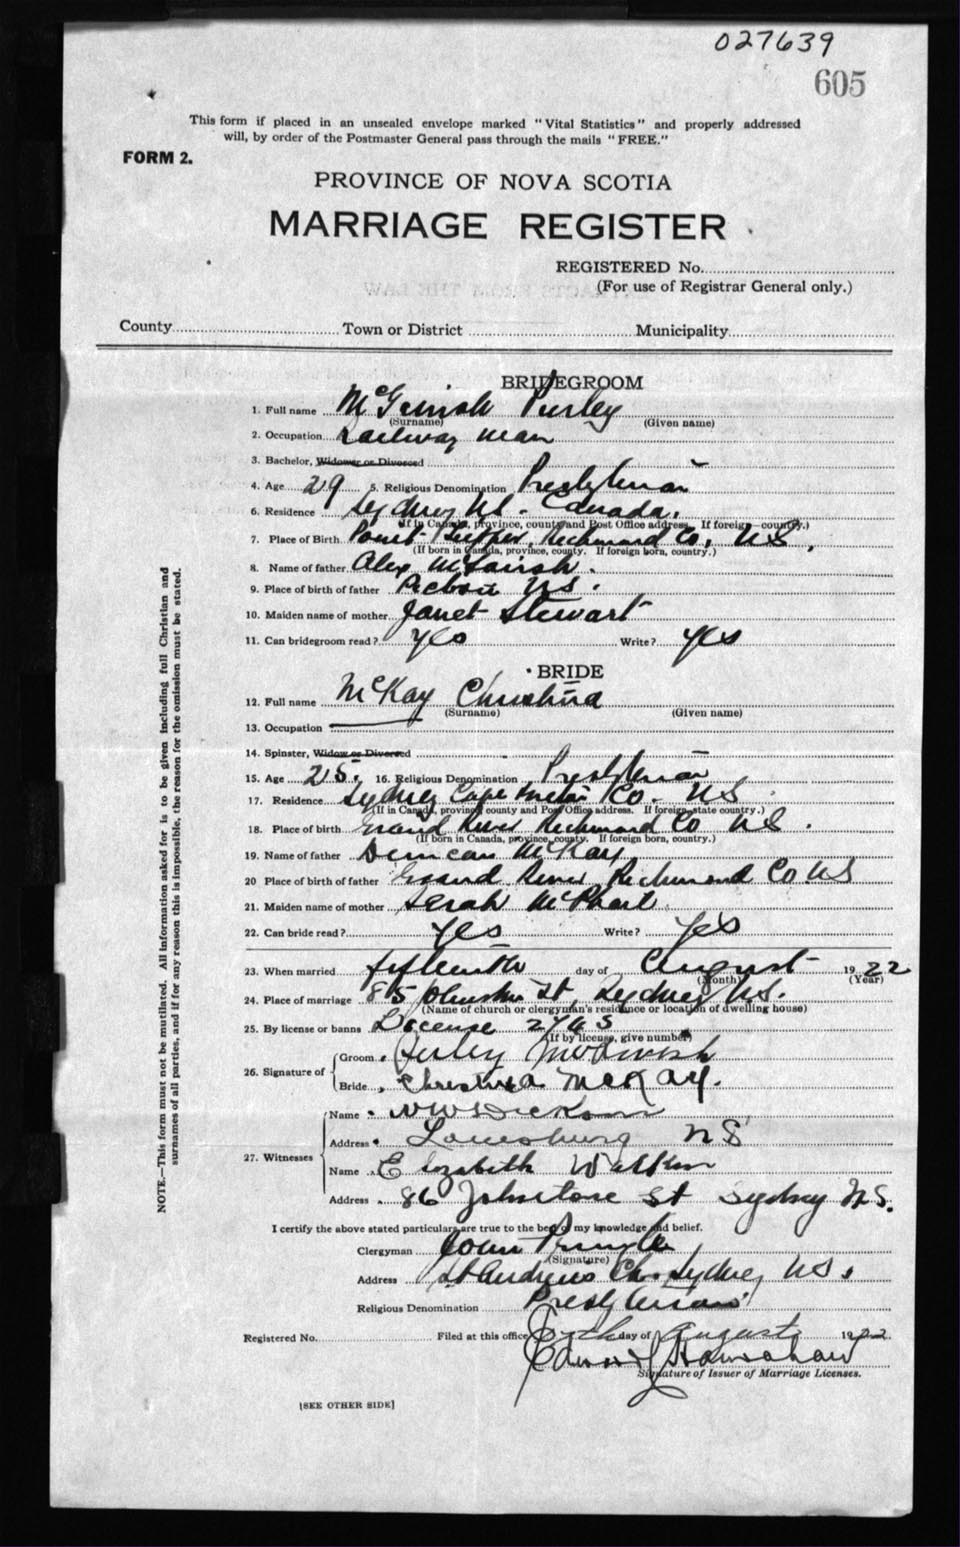 027639
605
This form if placed in an unsealed envelope marked "Vital Statistics" and properly addressed
will, by order of the Postmaster General pass through the mails "FREE."
FORM 2.
PROVINCE OF NOVA SCOTIA
MARRIAGE REGISTER
REGISTERED No.
(For use of Registrar General only.)
County Town or District Municipality
BRIDEGROOM
1. Full name Purley
(Surname) (Given name)
2. Occupation Railway man
3. Bachelor, Widower or Divorced
4. Age 29 5. Religious Denomination Presbyterian
6. Residence Sydney NS. Canada.
(If in Canada, province, county and Post Office address. If foreign—country.)
7. Place of Birth Point Richmond Co. NS.
(If born in Canada, province, county. If foreign born, country.)
8. Name of father Alex
9. Place of birth of father Pictou NS.
10. Maiden name of mother Janet Stewart
11. Can bridegroom read? yes Write? yes
BRIDE
12. Full name McKay Christina
(Surname) (Given name)
13. Occupation
14. Spinster, Widow or Divorced
15. Age 25. 16. Religious Denomination Presbyterian
17. Residence Sydney Cape Breton Co. NS
(If in Canada, province county and Post Office address. If foreign—state country.)
18. Place of birth Grand River Richmond Co NS.
(If born in Canada, province, county. If foreign born, country.)
19. Name of father Duncan McKay
20 Place of birth of father Grand River Richmond Co NS
21. Maiden name of mother Serah McPhail
22. Can bride read? Yes Write? Yes
23. When married fifteenth day of August 1922
(Month) (Year)
24. Place of marriage 85 St, Sydney NS.
(Name of church or clergyman's residence or location of dwelling house)
25. By license or banns License
(If by license, give number)
26. Signature of
Groom
Bride Christina McKay.
27. Witnesses
Name
Address Louisburg NS
Name Elizabeth
Address 86 Johnstone St Sydney N.S.
I certify the above stated particulars are true to the best of my knowledge and belief.
Clergyman John Pringle
(Signature)
Address St Andrews Ch. Sydney NS.
Religious Denomination Presbyterian
Registered No. Filed at this office day of August 1922
Signature of Issuer of Marriage Licenses.
[SEE OTHER SIDE]
NOTE.—This form must not be mutilated. All information asked for is to be given including full Christian and
surnames of all parties, and if for any reason this is impossible, the reason for the omission must be stated.